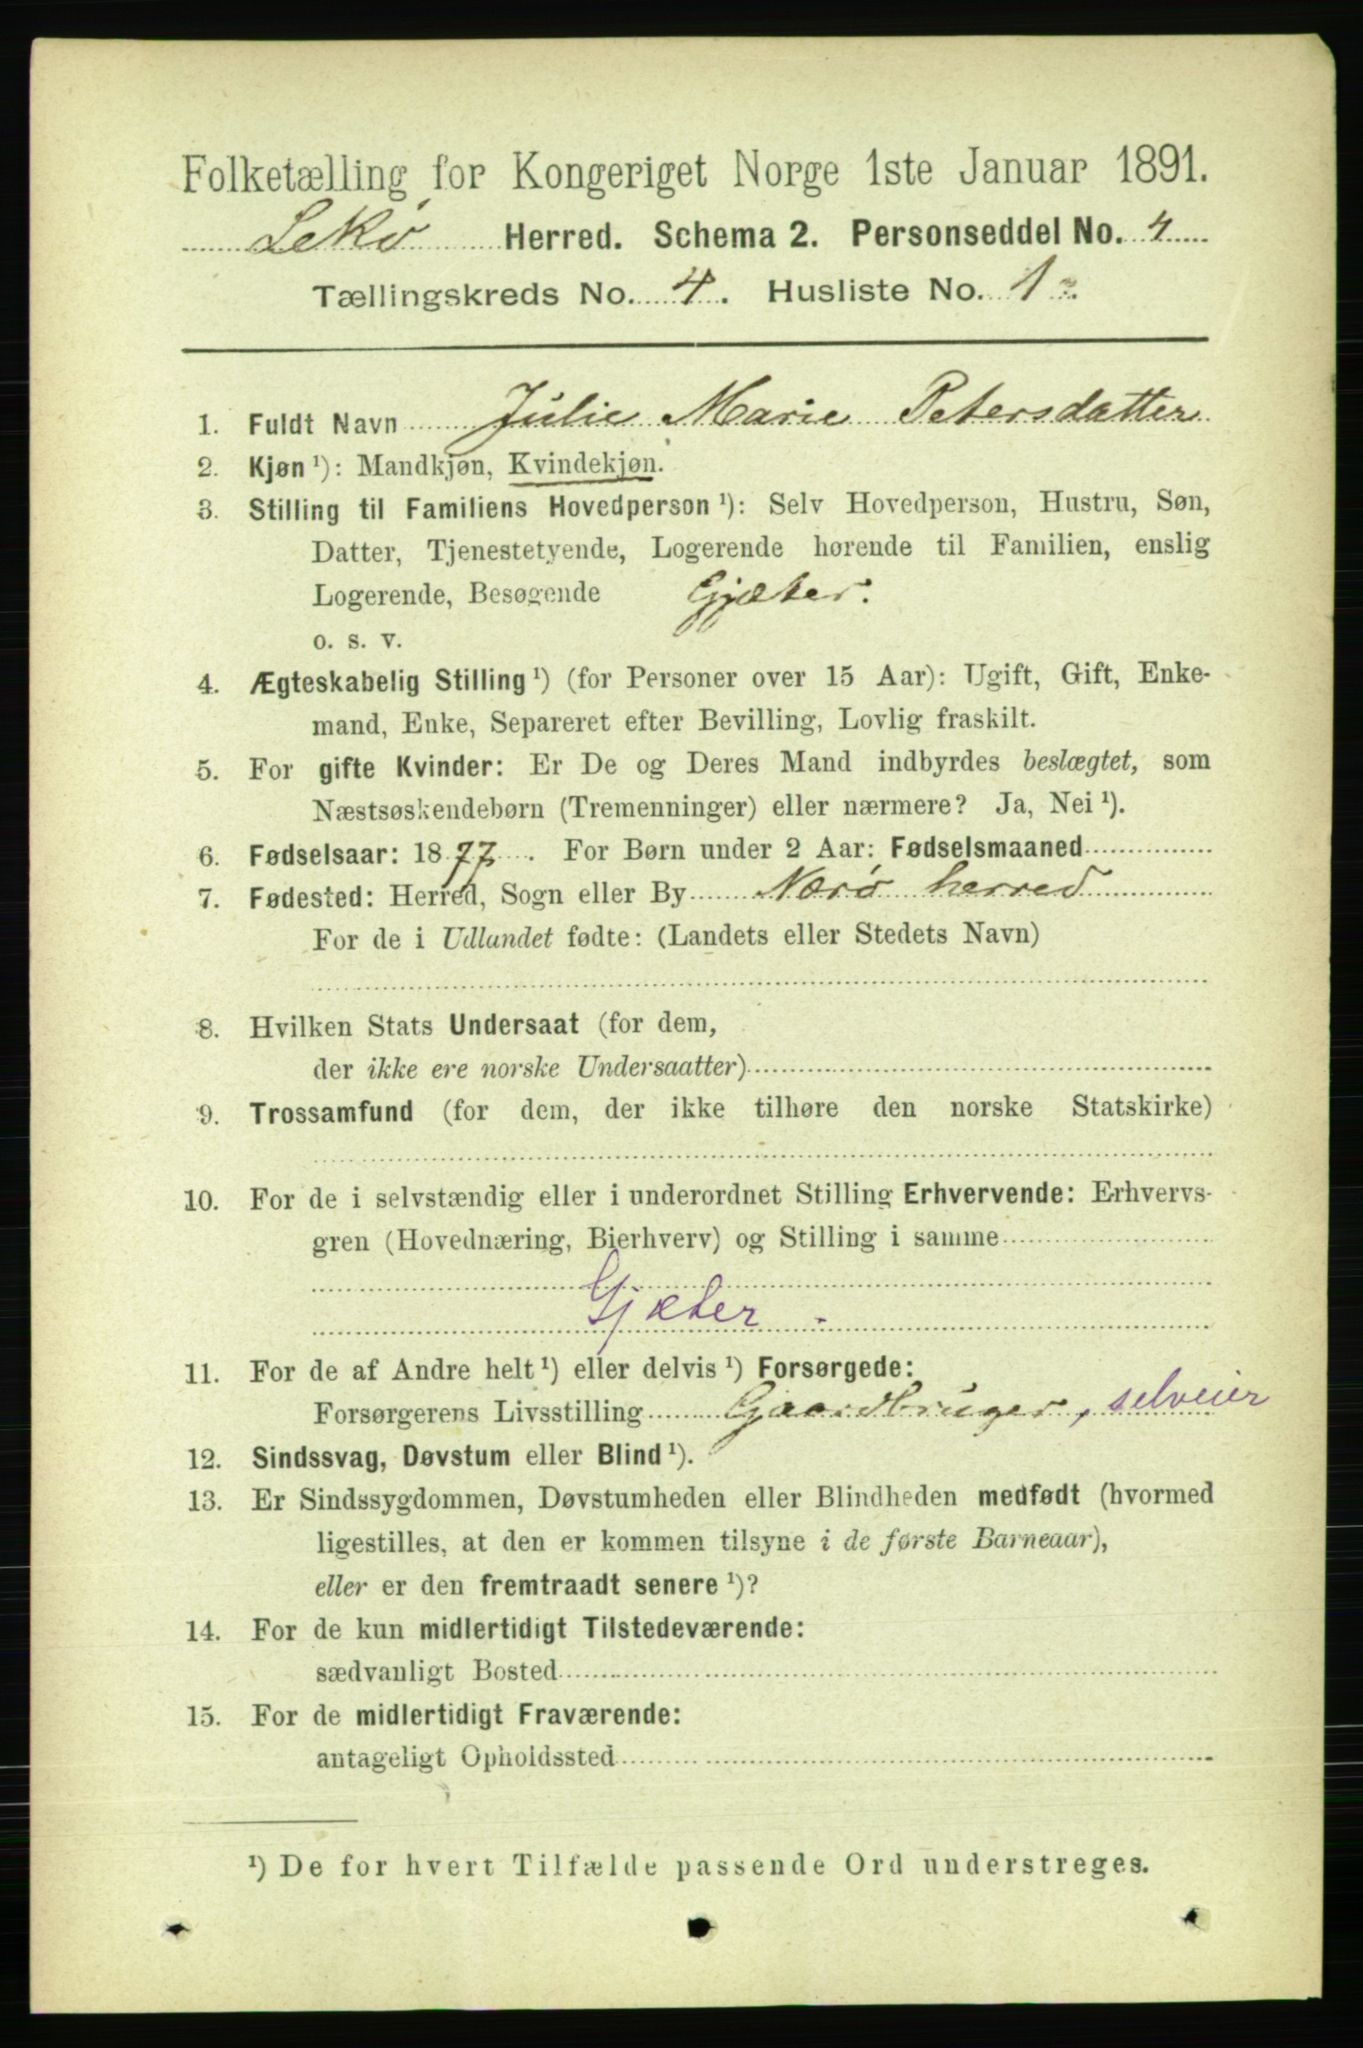 Folketælling for Kongeriget Norge 1ste Januar 1891.
Lekø Herred. Schema 2. Personseddel No. 4
Tællingskreds No. 4. Husliste No. 1
1. Fuldt Navn Julie Marie Petersdatter
2. Kjøn ¹): Mandkjøn, Kvindekjøn.
3. Stilling til Familiens Hovedperson ¹): Selv Hovedperson, Hustru, Søn,
Datter, Tjenestetyende, Logerende hørende til Familien, enslig
Logerende, Besøgende Gjæter.
o. s. v.
4. Ægteskabelig Stilling ¹) (for Personer over 15 Aar): Ugift, Gift, Enke-
mand, Enke, Separeret efter Bevilling, Lovlig fraskilt.
5. For gifte Kvinder: Er De og Deres Mand indbyrdes beslægtet, som
Næstsøskendebørn (Tremenninger) eller nærmere? Ja, Nei ¹).
6. Fødselsaar: 1877. For Børn under 2 Aar: Fødselsmaaned
7. Fødested: Herred, Sogn eller By Nærø herred
For de i Udlandet fødte: (Landets eller Stedets Navn)
8. Hvilken Stats Undersaat (for dem,
der ikke ere norske Undersaatter)
9. Trossamfund (for dem, der ikke tilhøre den norske Statskirke)
10. For de i selvstændig eller i underordnet Stilling Erhvervende: Erhvervs-
gren (Hovednæring, Bierhverv) og Stilling i samme
Gjæter.
11. For de af Andre helt ¹) eller delvis ¹) Forsørgede:
Forsørgerens Livsstilling Gaardbruger, selveier
12. Sindssvag, Døvstum eller Blind ¹).
13. Er Sindssygdommen, Døvstumheden eller Blindheden medfødt (hvormed
ligestilles, at den er kommen tilsyne i de første Barneaar),
eller er den fremtraadt senere ¹)?
14. For de kun midlertidigt Tilstedeværende:
sædvanligt Bosted
15. For de midlertidigt Fraværende:
antageligt Opholdssted
¹) De for hvert Tilfælde passende Ord understreges.